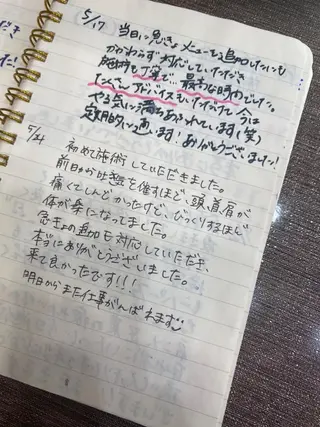 5/17
当日に急きょメニューを追加したにも
かかわらず対応していただき
施術も丁寧で、最高な時間でした。
たくさんアドバイスもいただけて、今は
やる気に満ちあふれています(笑)
定期的に通います！ありがとうございました！
5/24
初めて施術していただきました。
前日から吐き気を催すほど、頭、首、肩が
痛くてしんどかったけど、びっくりするほど
体が楽になってました。
急きょの追加も対応していただき、
本当にありがとうございました。
来て良かったです!!!
明日からまた仕事がんばれます